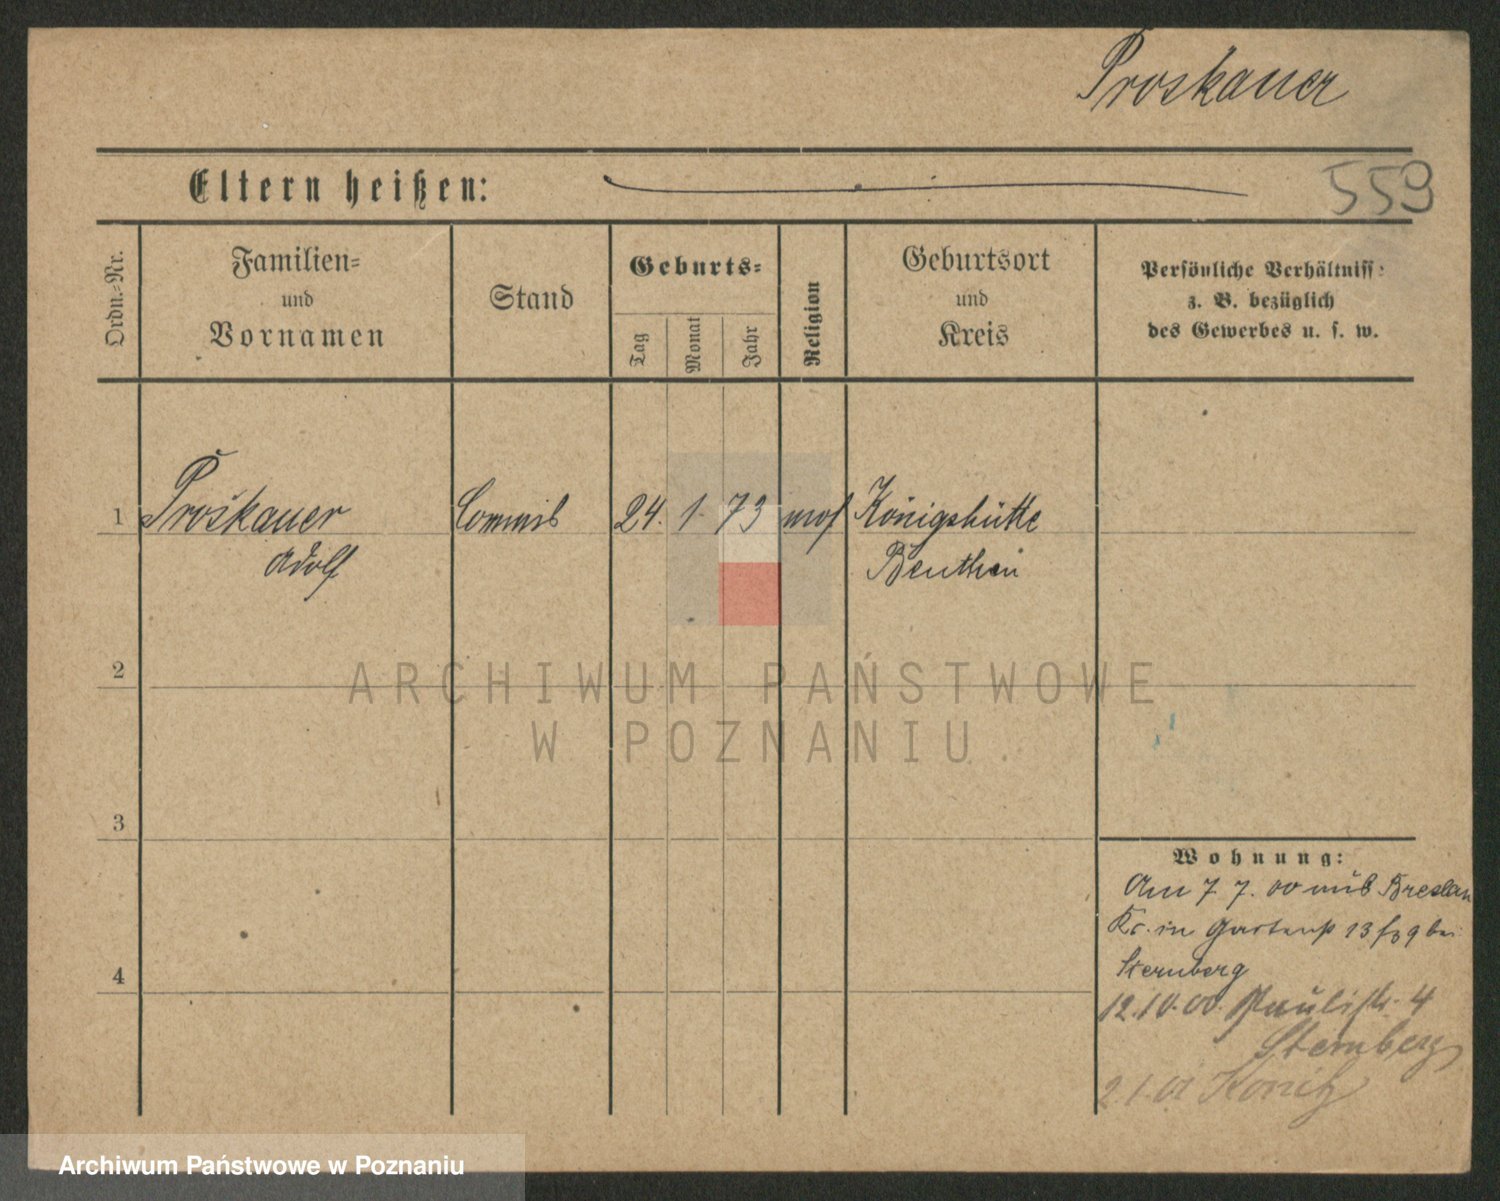 Proskauer
Eltern heißen:
559
Ordn.-Nr.
Familien-
und
Vornamen
Stand
Geburts-
Tag
Monat
Jahr
Religion
Geburtsort
und
Kreis
Persönliche Verhältnisse
z. B. bezüglich
des Gewerbes u. s. w.
1 Proskauer Commis 24. 1. 73 mos Königshütte
Adolf Beuthen
2
ARCHIWUM PAŃSTWOWE
W POZNANIU
3
Wohnung:
Am 7. 7. 00 aus Breslau
in Gartenstr 13 bei
Sternberg
4
12.10.00. Paulistr. 4
Sternberg
2.1.01 Konitz
Archiwum Państwowe w Poznaniu